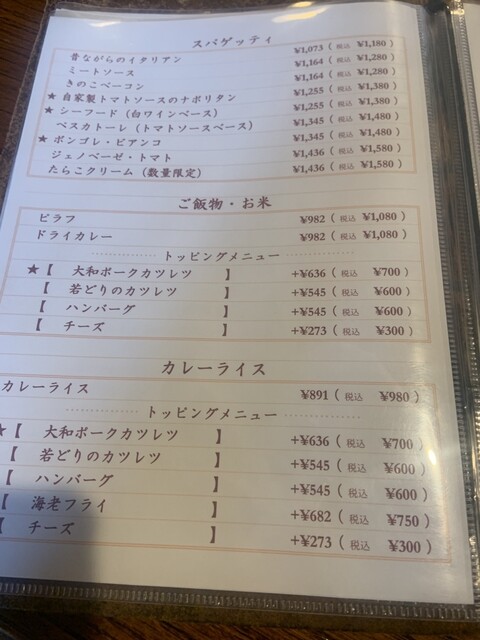 スパゲッティ
昔ながらのイタリアン ¥1,073 ( 税込 ¥1,180 )
ミートソース ¥1,164 ( 税込 ¥1,280 )
きのこベーコン ¥1,164 ( 税込 ¥1,280 )
★ 自家製トマトソースのナポリタン ¥1,255 ( 税込 ¥1,380 )
★ シーフード（白ワインベース） ¥1,255 ( 税込 ¥1,380 )
ペスカトーレ（トマトソースベース） ¥1,345 ( 税込 ¥1,480 )
★ ボンゴレ・ビアンコ ¥1,345 ( 税込 ¥1,480 )
ジェノベーゼ・トマト ¥1,436 ( 税込 ¥1,580 )
たらこクリーム（数量限定） ¥1,436 ( 税込 ¥1,580 )
ご飯物・お米
ピラフ ¥982 ( 税込 ¥1,080 )
ドライカレー ¥982 ( 税込 ¥1,080 )
トッピングメニュー
★【 大和ポークカツレツ 】 +¥636 ( 税込 ¥700 )
【 若どりのカツレツ 】 +¥545 ( 税込 ¥600 )
【 ハンバーグ 】 +¥545 ( 税込 ¥600 )
【 チーズ 】 +¥273 ( 税込 ¥300 )
カレーライス
カレーライス ¥891 ( 税込 ¥980 )
トッピングメニュー
★【 大和ポークカツレツ 】 +¥636 ( 税込 ¥700 )
【 若どりのカツレツ 】 +¥545 ( 税込 ¥600 )
【 ハンバーグ 】 +¥545 ( 税込 ¥600 )
【 海老フライ 】 +¥682 ( 税込 ¥750 )
【 チーズ 】 +¥273 ( 税込 ¥300 )